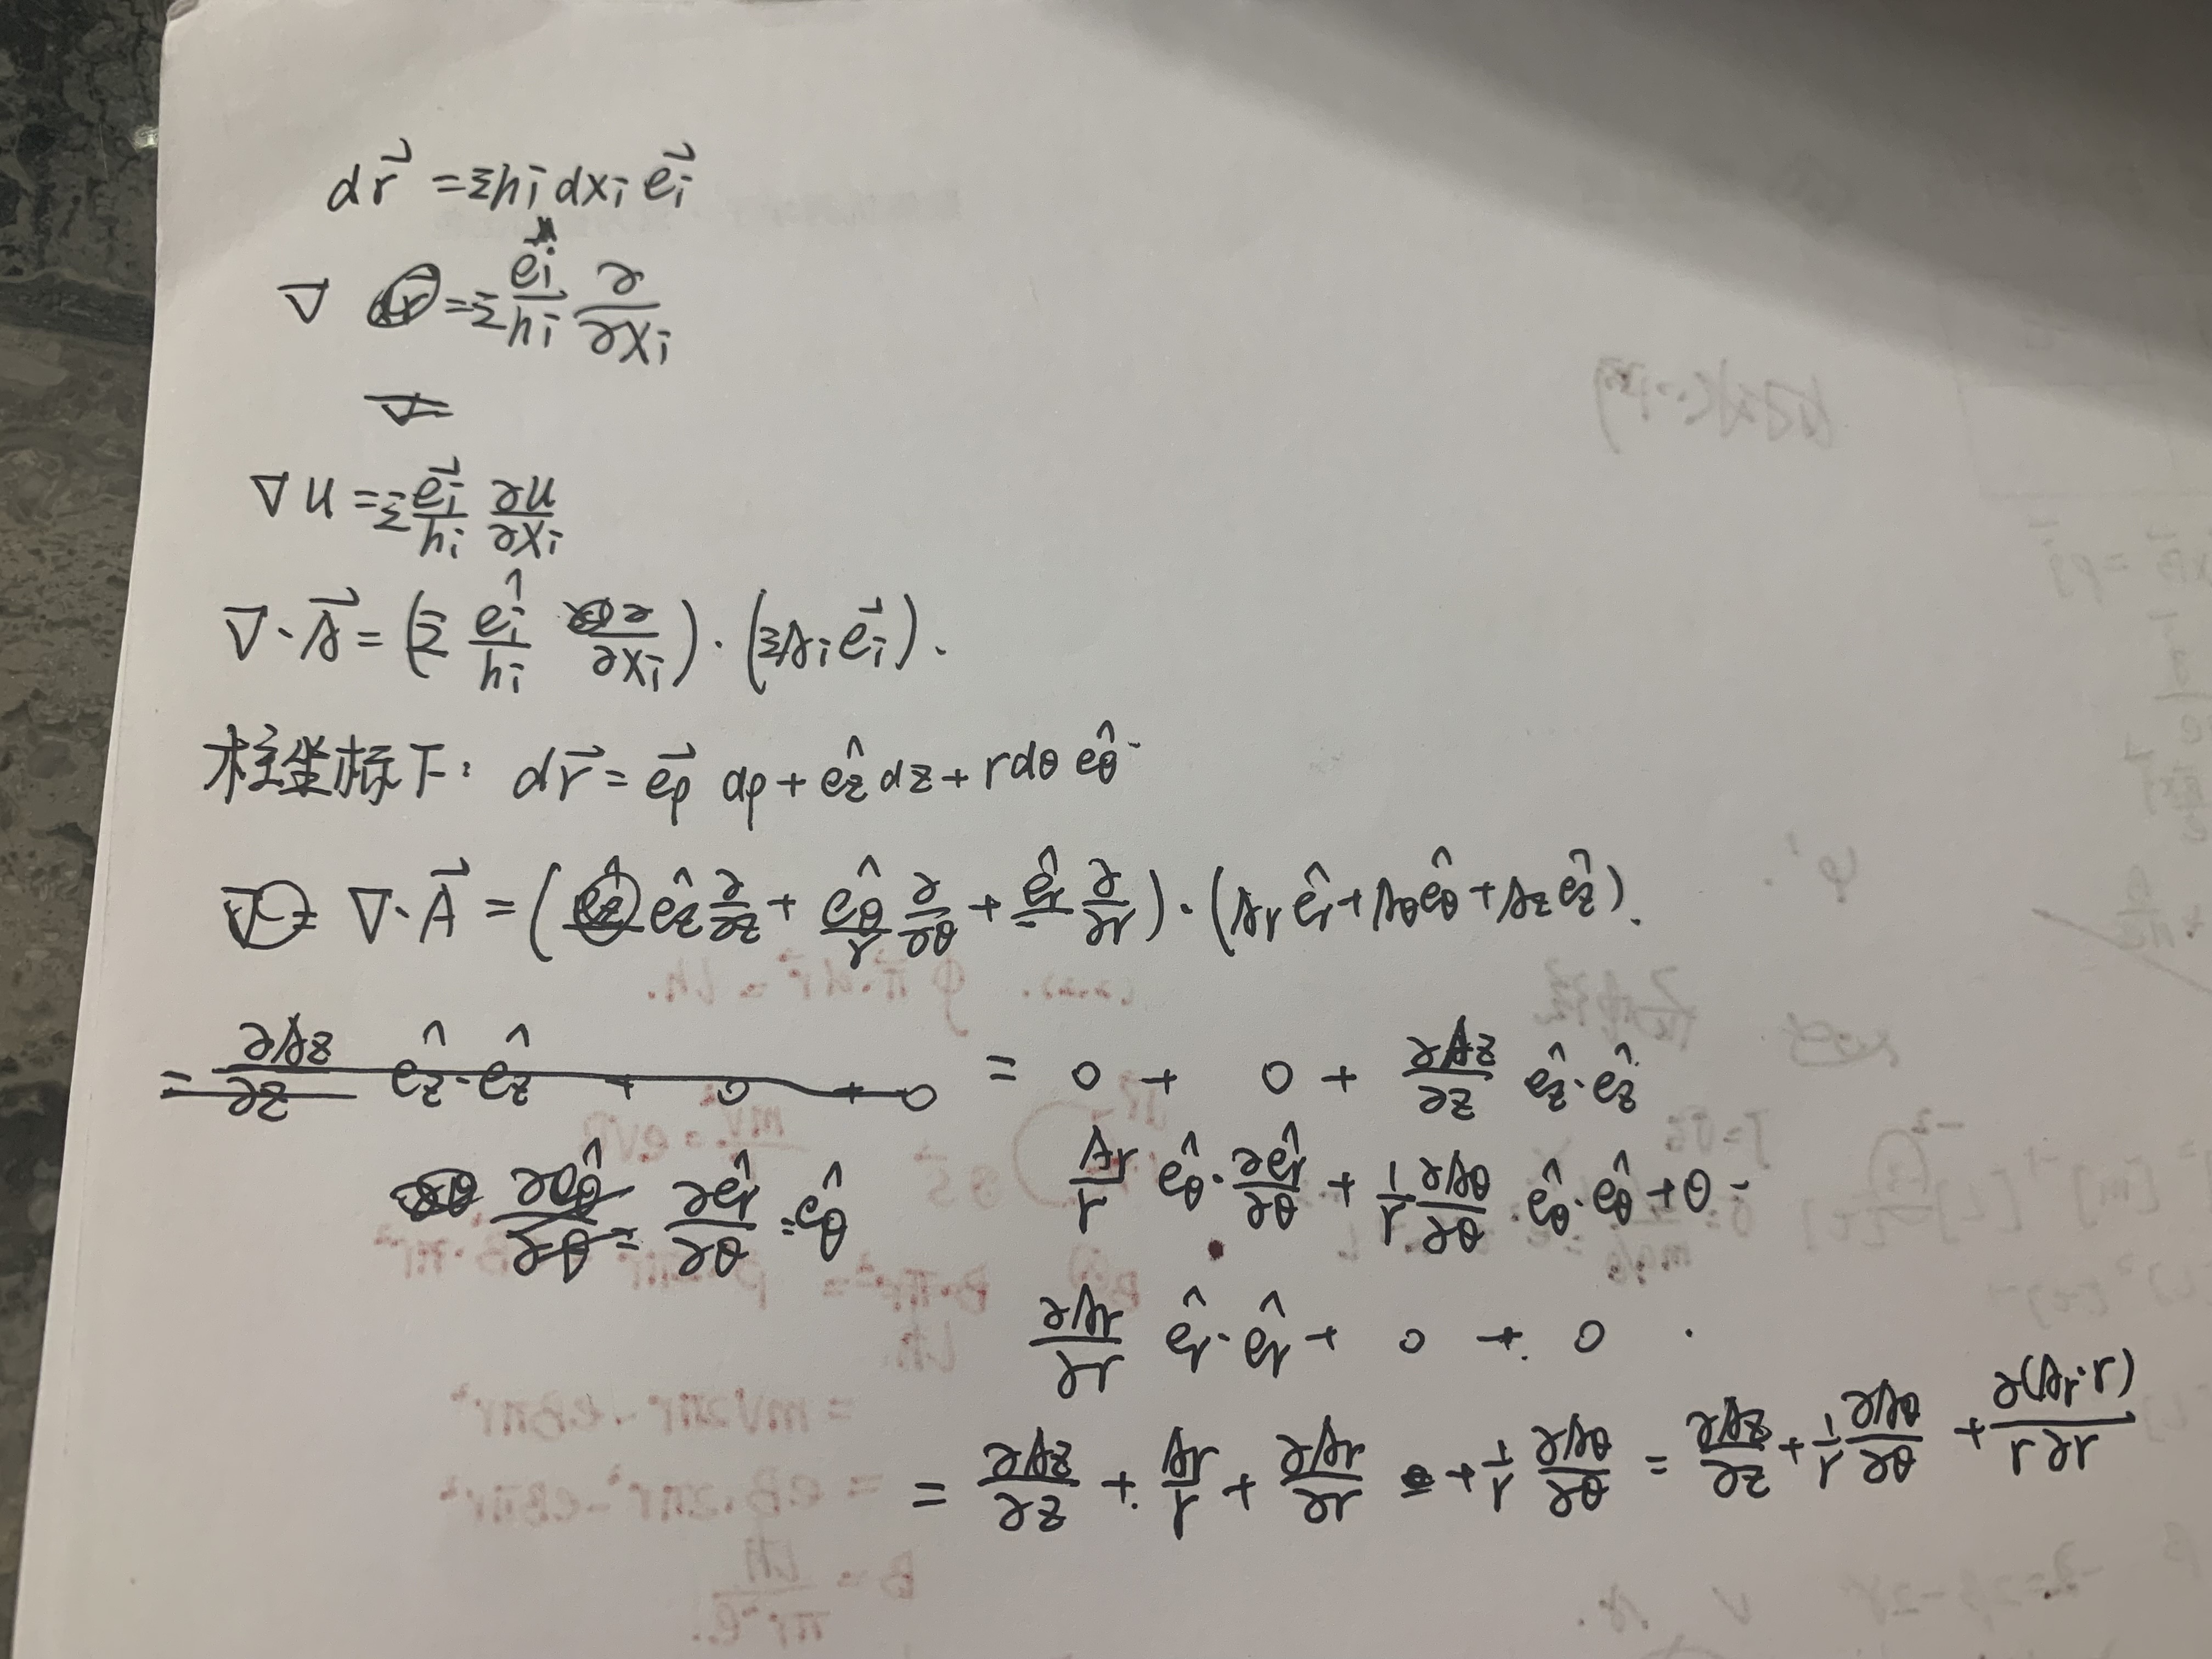 d\vec{r} = Σ hi dxi \vec{ei}
∇ = Σ \frac{\vec{ei}}{hi} \frac{∂}{∂xi}
∇u = Σ \frac{\vec{ei}}{hi} \frac{∂u}{∂xi}
∇·\vec{A} = (Σ \frac{\hat{ei}}{hi} \frac{∂}{∂xi})·(Σ Ai \vec{ei}).
柱坐标下: d\vec{r} = \vec{eρ} dρ + \hat{ez} dz + r dθ \hat{eθ}
∇·\vec{A} = (\hat{ez} \frac{∂}{∂z} + \frac{\hat{eθ}}{r} \frac{∂}{∂θ} + \hat{er} \frac{∂}{∂r})·(Ar \hat{er} + Aθ \hat{eθ} + Az \hat{ez}).
= \frac{∂Az}{∂z} \hat{ez}·\hat{ez} + 0 + 0 = 0 + 0 + \frac{∂Az}{∂z} \hat{ez}·\hat{ez}
\frac{∂\hat{eθ}}{∂θ} = \frac{∂\hat{er}}{∂θ} = \hat{eθ} \frac{Ar}{r} \hat{eθ}·\frac{∂\hat{er}}{∂θ} + \frac{1}{r} \frac{∂Aθ}{∂θ} \hat{eθ}·\hat{eθ} + 0
\frac{∂Ar}{∂r} \hat{er}·\hat{er} + 0 + 0.
= \frac{∂Az}{∂z} + \frac{Ar}{r} + \frac{∂Ar}{∂r} + \frac{1}{r} \frac{∂Aθ}{∂θ} = \frac{∂Az}{∂z} + \frac{1}{r} \frac{∂Aθ}{∂θ} + \frac{∂(Ar·r)}{r∂r}